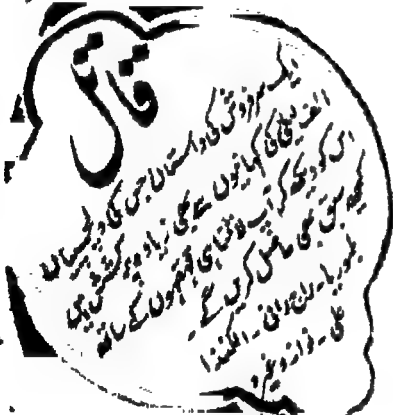 قاتل
ایک سرفروش کی داستان جس کی دلچسپیاں
الف لیلیٰ کی کہانیوں سے بھی زیادہ پرکشش ہیں
اس کو دیکھ کر آپ لامتناہی قہقہوں کے ساتھ
کچھ سبق بھی حاصل کریں گے۔
بلموریا۔ راج رانی۔ الکنندا
علی۔ نواز وغیرہ